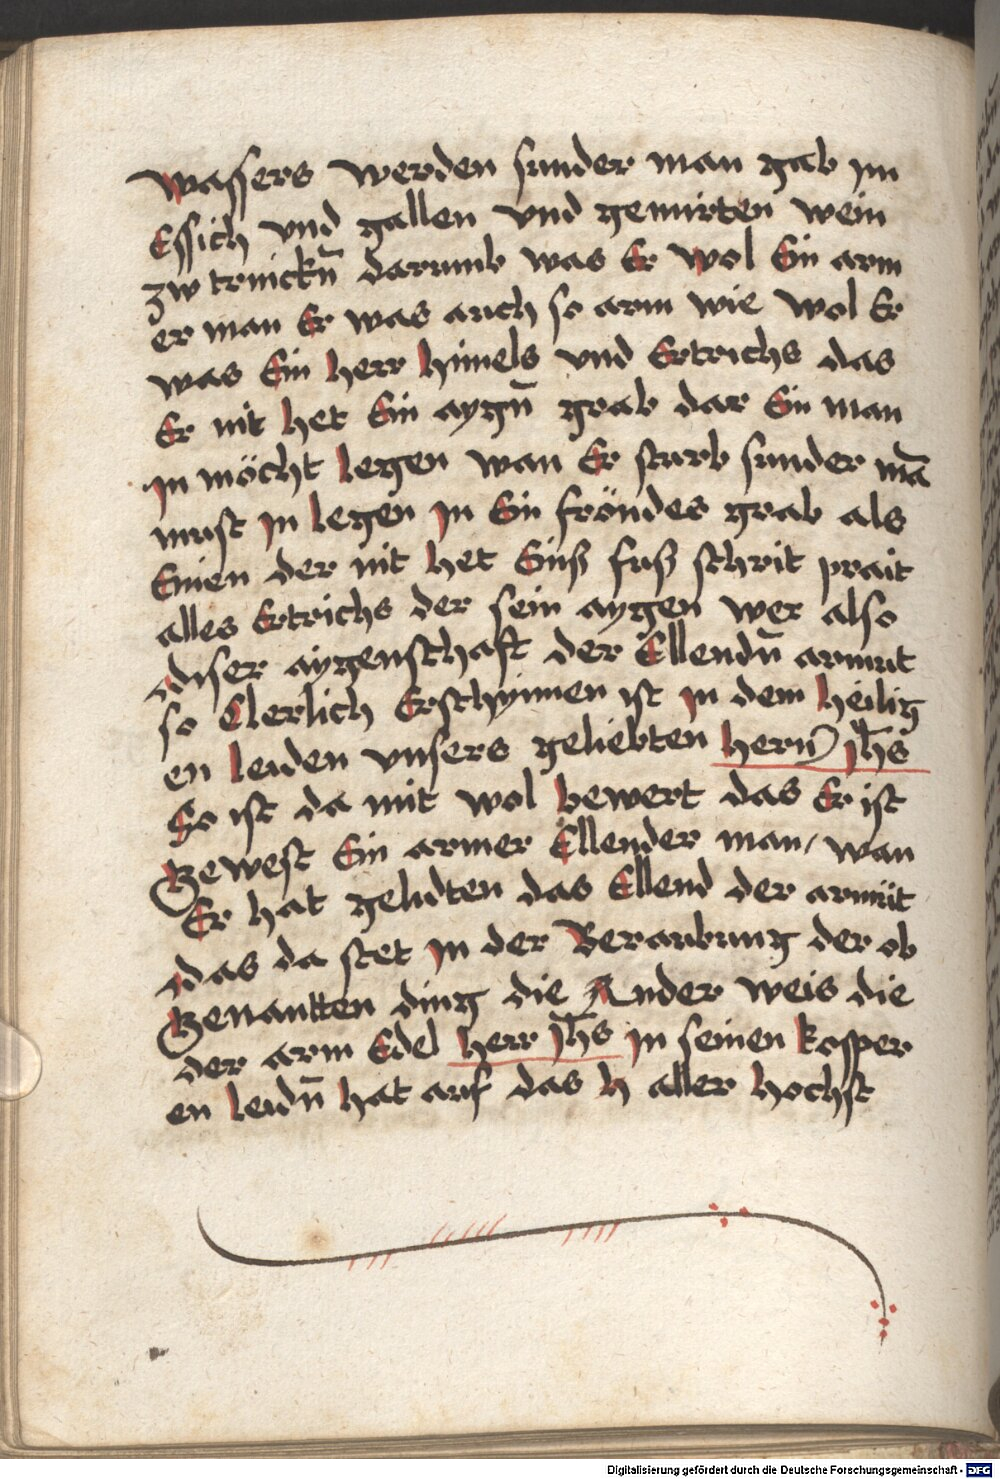 wassers werden sunder man gab im
Essich vnd gallen vnd gemirten wein
zw trinckn̄ darumb was Er wol Ein arm
er man Er was auch so arm wie wol Er
was Ein herr himels vnd Ertrichs das
Er nit het Ein aygn̄ grab dar Ein man
in möcht legen wan Er starb sunder mā
must in legen in Ein fröndes grab als
Einen der nit het Einß fuß schrit prait
alles Ertrichs der sein aygen wer also
diser aygenschaft der Ellendn̄ armut
so Clerlich Erschynnen ist in dem heilig
en leiden vnsers geliebten hern Jh̄s
So ist da mit wol bewert das Er ist
Gewest Ein armer Ellender man / wan
Er hat gelidten das Ellend der armüt
das da stet in der Beraubung der ob
Genantten ding die Ander weis die
der arm Edel herr Jh̄s in seinen kosper
en leidn̄ hat auf das h aller hochst
Digitalisierung gefördert durch die Deutsche Forschungsgemeinschaft - DFG